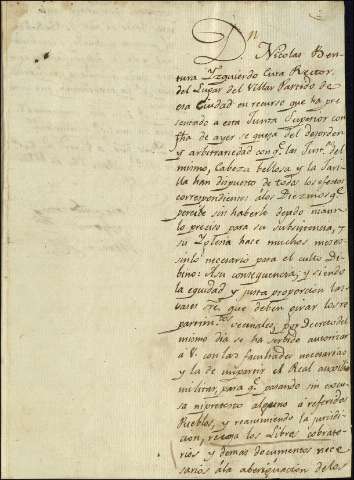 Dn Nicolas Ben
tura Yzquierdo Cura Rector
del Lugar del Villar Partido de
esa Ciudad en recurso que ha pre
sentado a esta Junta Superior con
fha de ayer se queja del desorden
y arbitrariedad con q.e las Junt.s del
mismo, Cabeza bellosa y la Fari
lla han dispuesto de todos los efectos
correspondientes álos Diezmos q.e
percibe sin haberle dejado maun
lo preciso para su subsistencia, y
su Yglesia hace muchos meses
sinlo necesario para el culto Di
bino: Asu consequencia, y siendo
la equidad y justa proporción las
vases que deben girar los re
partim.tos vecinales, por Decreto del
mismo dia se ha serbido autorizar
á V. con las facultades necesarias
y la de impartir el Real auxilio
militar, para q.e pasando sin escu
sa nipretexto alguno á referidos
Pueblos, y reasumiendo la jurisdi
cion, recoja los Libros cobrato
rios y demas documentos nece
sarios ála aberiguación de los